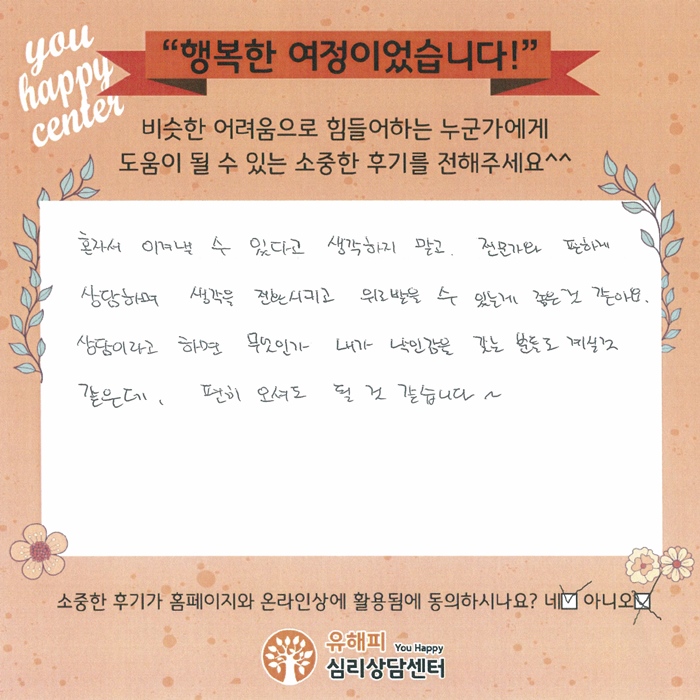 you
happy
center
“행복한 여정이었습니다!”
비슷한 어려움으로 힘들어하는 누군가에게
도움이 될 수 있는 소중한 후기를 전해주세요^^
혼자서 이겨낼 수 있다고 생각하지 말고, 전문가와 편하게
상담하며 생각을 전환시키고 위로받을 수 있는게 좋은것 같아요.
상담이라고 하면 무엇인가 내가 낙인감을 갖는 분들도 계실것
같은데, 편히 오셔도 될 것 같습니다~
소중한 후기가 홈페이지와 온라인상에 활용됨에 동의하시나요? 네 아니오
유해피 You Happy
심리상담센터